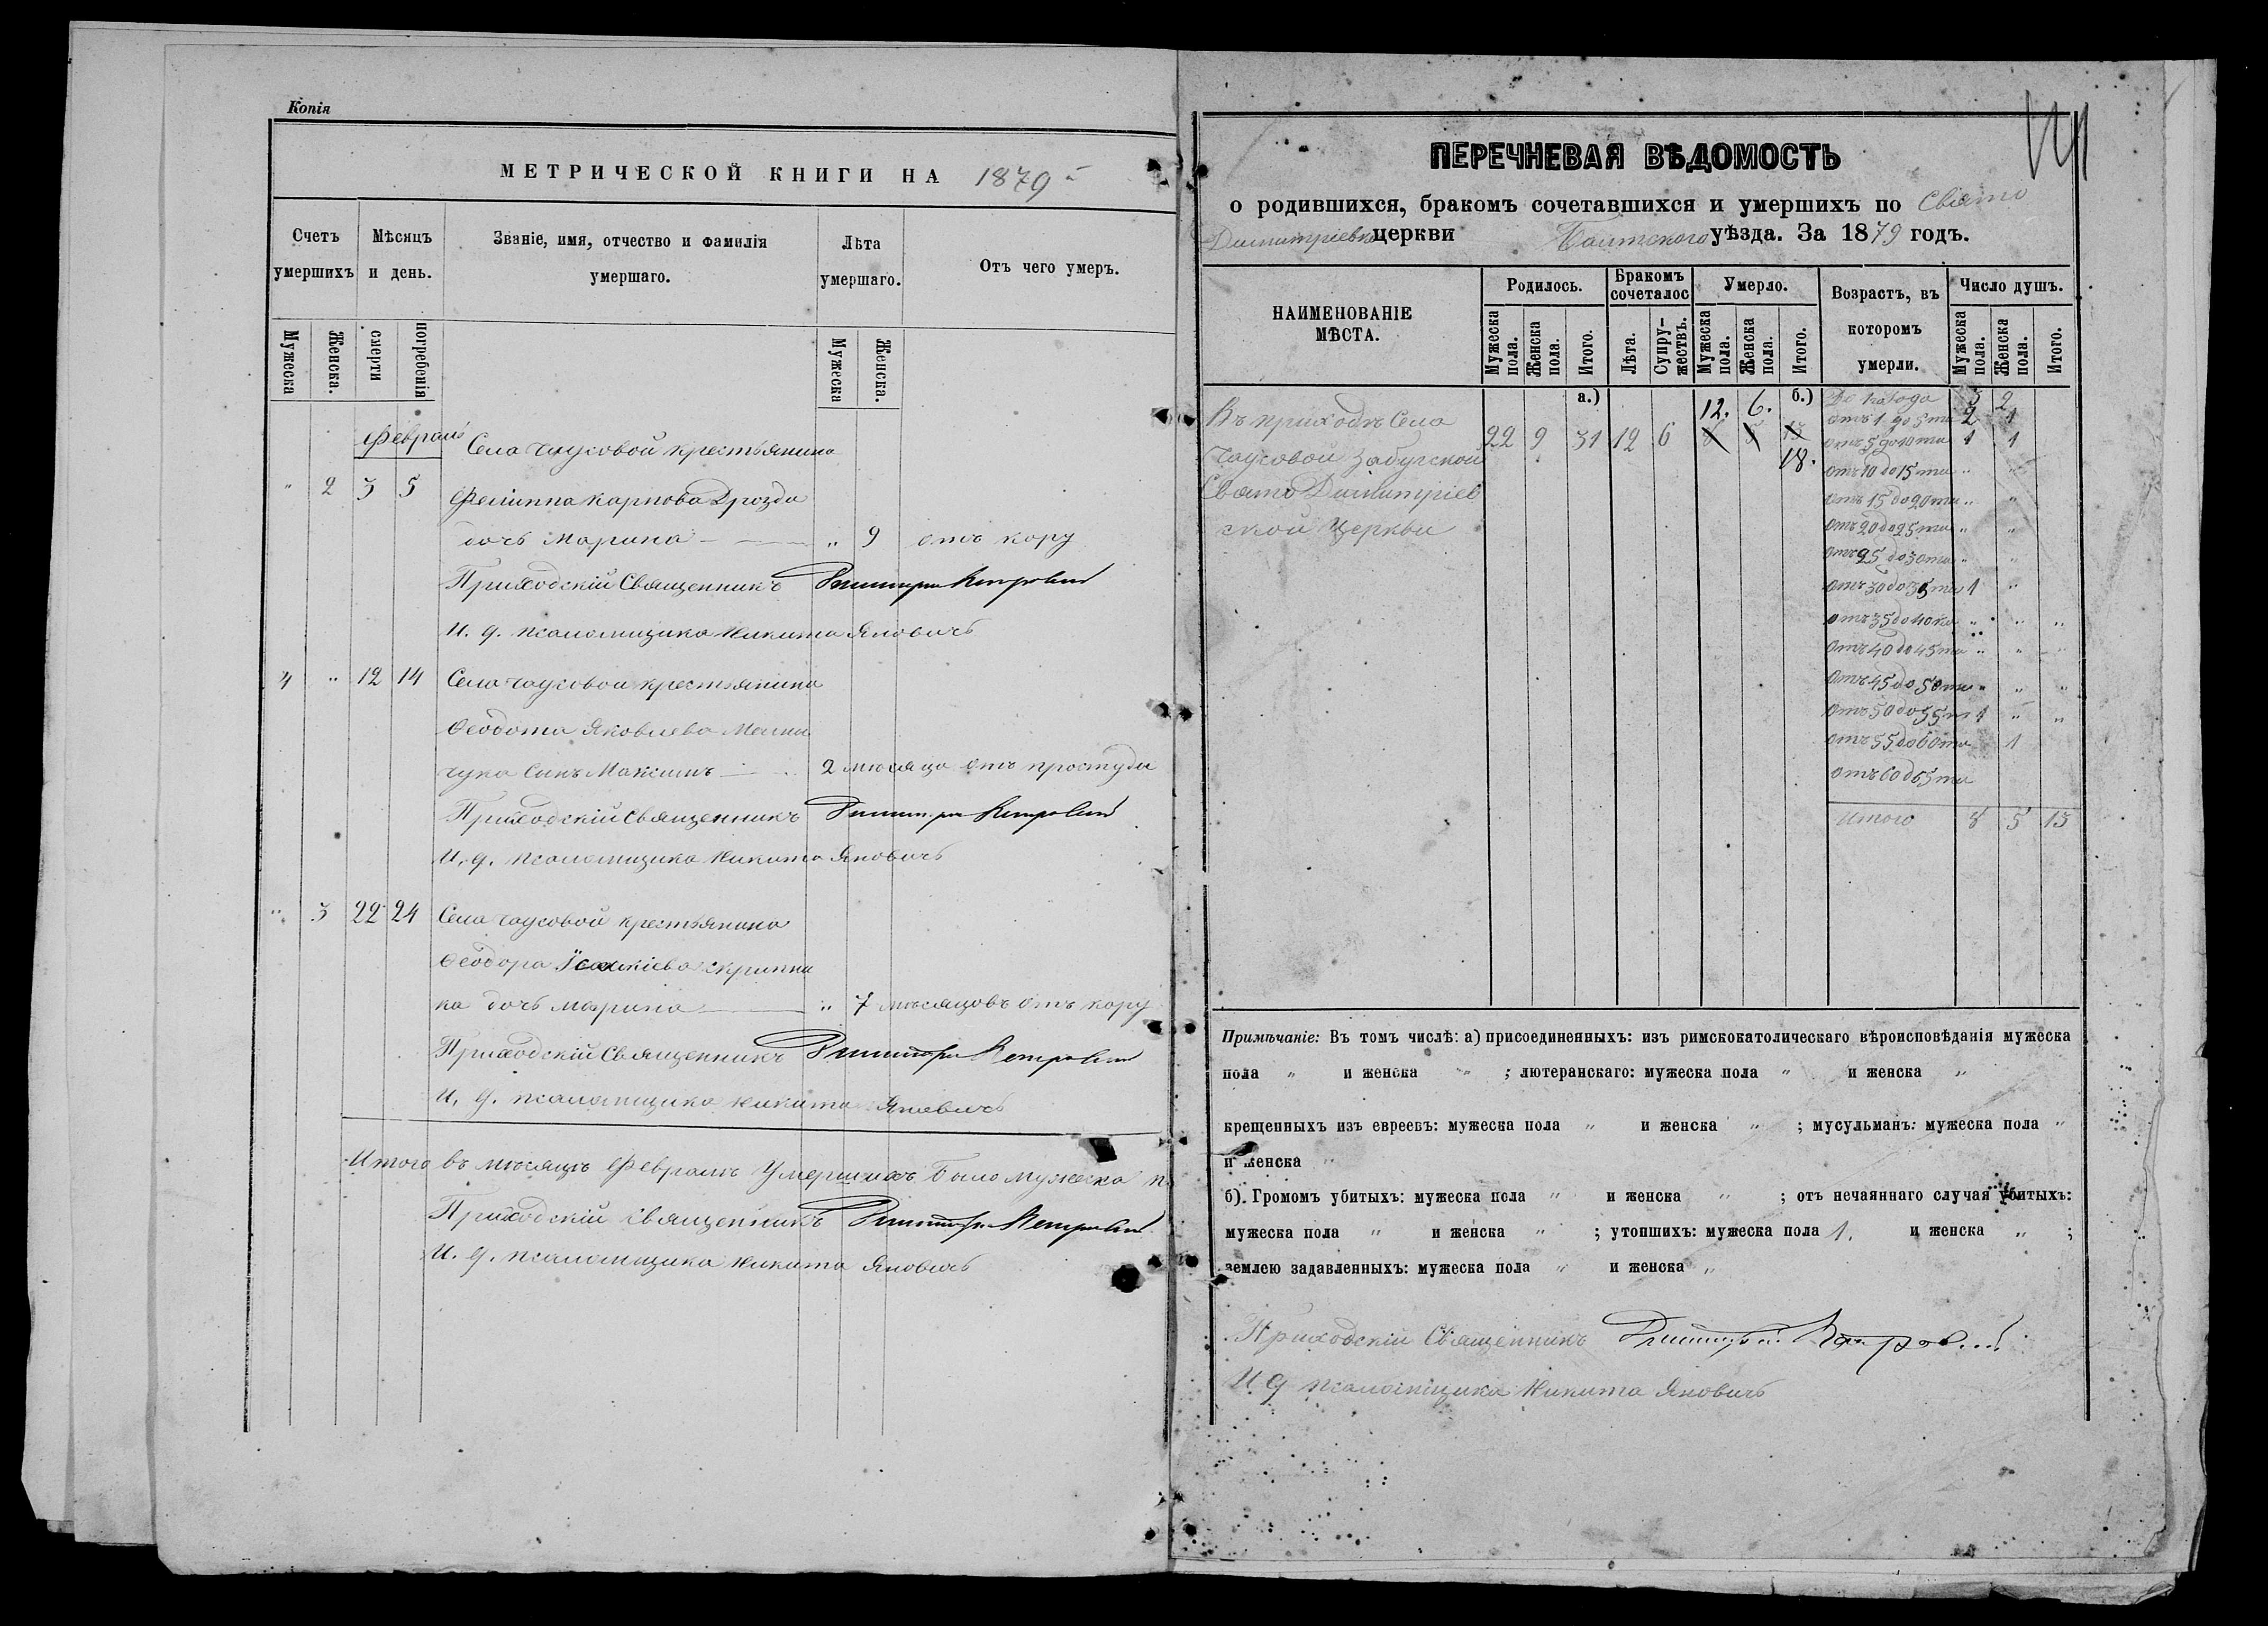 Копія
МЕТРИЧЕСКОЙ КНИГИ НА 1879
Счетъ умершихъ
Мѣсяцъ и день.
Званіе, имя, отчество и фамилія умершаго.
Лѣта умершаго.
Отъ чего умеръ.
Мужеска
Женска.
смерти
погребенія
Мужеска
Женска.
Февраль
Села Чаусовой крестьянина
" 2 3 5 Филиппа Карпова Дрозда
дочь Марина — " 9 отъ кору
Приходскій Священникъ Димитрій
И. д. псаломщика Никита Яновичъ
4 " 12 14 Села Чаусовой крестьянина
Ѳеодота Яковлева
чука сынъ Максимъ — 2 мѣсяца отъ простуды
Приходскій Священникъ Димитрій
И. д. псаломщика Никита Яновичъ
" 3 22 24 Села Чаусовой крестьянина
Ѳеодора Скрипни
ка дочь Марина — " 7 мѣсяцовъ отъ кору
Приходскій Священникъ Димитрій
И. д. псаломщика Никита Яновичъ
Итого въ мѣсяцѣ Февралѣ умершихъ было мужеска п.
Приходскій Священникъ Димитрій
И. д. псаломщика Никита Яновичъ
ПЕРЕЧНЕВАЯ ВѢДОМОСТЬ
о родившихся, бракомъ сочетавшихся и умершихъ по Свято
Димитріевской церкви Балтского уѣзда. За 1879 годъ.
НАИМЕНОВАНІЕ МѢСТА.
Родилось.
Бракомъ сочеталос
Умерло.
Возрастъ, въ котором умерли.
Число душъ.
Мужеска пола.
Женска пола.
Итого.
Лѣта.
Супружествъ.
Мужеска пола.
Женска пола.
Итого.
Мужеска пола.
Женска пола.
Итого.
а.) б.)
Въ приходѣ Села
Чаусовой Забугской
Свято Димитріев
ской Церкви
22 9 31 12 6 8 5 13
12. 6. 18.
До 1 года 3 2
отъ 1 до 5ти 2 1
отъ 5 до 10ти 1 1
отъ 10 до 15ти " "
отъ 15 до 20ти " "
отъ 20 до 25ти " "
отъ 25 до 30ти " "
отъ 30 до 35ти 1 "
отъ 35 до 40ка " " "
отъ 40 до 45ти " " "
отъ 45 до 50ти " " "
отъ 50 до 55ти 1 " "
отъ 55 до 60ти 1
отъ 60 до 65ти
Итого 8 5 13
Примѣчаніе: Въ томъ числѣ: а) присоединенныхъ: изъ римскокатолическаго вѣроисповѣданія мужеска
пола " и женска " ; лютеранскаго: мужеска пола " и женска "
крещенныхъ изъ евреевъ: мужеска пола " и женска " ; мусульманъ: мужеска пола "
и женска "
б). Громомъ убитыхъ: мужеска пола " и женска " ; отъ нечаяннаго случая убитыхъ:
мужеска пола " и женска " ; утопшихъ: мужеска пола 1. и женска " ;
землею задавленныхъ: мужеска пола " и женска "
Приходскій Священникъ Димитрій
И д псаломщика Никита Яновичъ